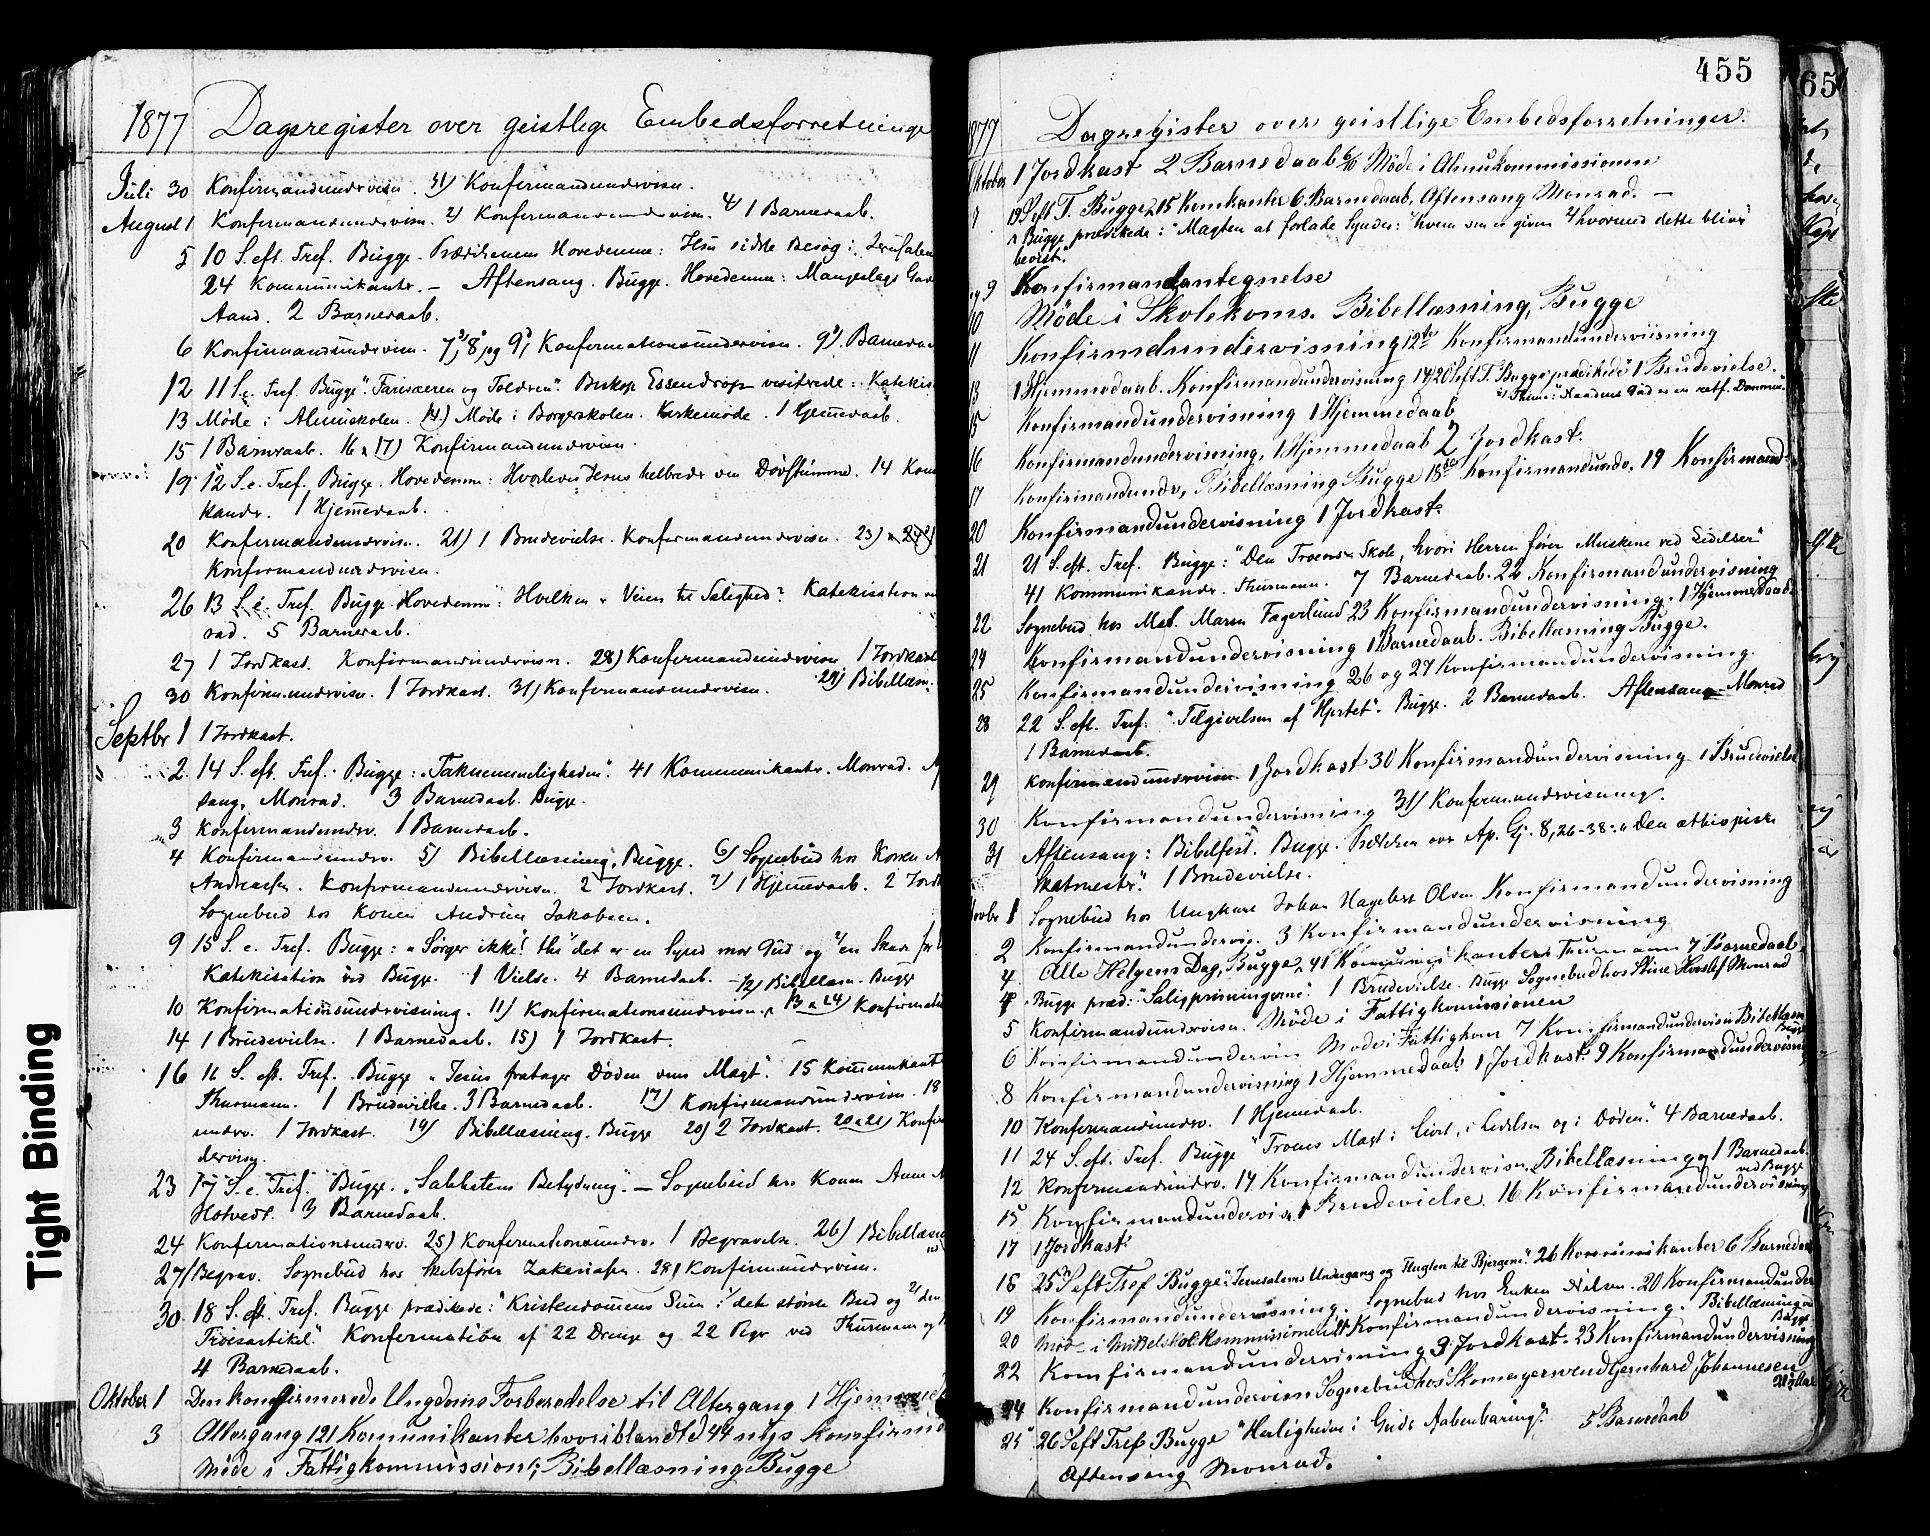 1877 Dagsregister over geistlige Embedsforretninge
Juli 30 Konfirmandundervisn. 31) Konfirmandundervisn.
August 1 Konfirmandundervisn. 2) Konfirmandundervisn. 4) 1 Barnedaab.
5 10 S. eft. Tref. Bugge. Prædikenens Hovedemne: Jesu sidste Besøg i Jerusalem
24 Kommunikanter. – Aftensang. Bugge. Hovedemne: Mangeslags
Aand. 2 Barnedaab.
6 Konfirmandundervisn. 7, 8 og 9, Konfirmationsundervisn. 9) Barneda
12 11 S. e. Tref. Bugge "Farisæeren og Tolderen". Biskop Essendrop visiterede: Katekis
13 Møde i Almueskolen. 14) Møde i Borgerskolen. Kirkemøde. 1 Hjemmedaab.
15 1 Barnedaab. 16 & 17) Konfirmandundervisn.
19 12 S. e. Tref. Bugge. Hovedemne: Hvorledes Jesus helbreder den Døvstumme. 14 Kom
kandr. 1 Hjemmedaab.
20 Konfirmandundervisn. 21) 1 Brudevielse. Konfirmandundervisn. 23) & 24)
Konfirmandundervisn.
26 13 S. e. Tref. Bugge. Hovedemne: Hvilken er Veien til Salighed? Katekisation
rad. 5 Barnedaab.
27 1 Jordkast. Konfirmandundervisn. 28) Konfirmandundervisn. 1 Jordkast
29) Bibellæsn.
30 Konfirm.undervisn. 1 Jordkast. 31) Konfirmandundervisn.
Septbr 1 1 Jordkast.
2 14 S. eft. Tref. Bugge: "Taknemmeligheden". 41 Kommunikanter. Monrad.
sang. Monrad. 3 Barnedaab. Bugge.
3 Konfirmandundv. 1 Barnedaab.
4 Konfirmandundv. 5) Bibellæsning, Bugge. 6) Sognebud hos Konen
Andreasen. Konfirmandundervisn. 2 Jordkast. 7) 1 Hjemmedaab. 2 Jord
Sognebud hos Konen Andrine Jakobsen.
9 15 S. e. Tref. Bugge: "Sørger ikke! thi det er en Synd mod Gud og 2) en Skade for
Katekisation ved Bugge. 1 Vielse. 4 Barnedaab. 12) Bibellæsn. Bugge
10 Konfirmationsundervisning. 11) Konfirmationsundervisn. 13 & 14) Konfirmati
14 1 Brudevielse. 1 Barnedaab. 15) 1 Jordkast.
16 16 S. eft. Tref. Bugge "Jesus fratager Døden dens Magt". 15 Kommunikant
Thurmann. 1 Brudevielse. 3 Barnedaab. 17) Konfirmandundervisn. 18
undrv. 1 Jordkast. 19) Bibellæsning. Bugge 20) 2 Jordkast. 20 & 21) Konfir
dervisn.
23 17 S. e. Tref. Bugge. "Sabbatens Betydning". – Sognebud hos Konen Anne
Hotvedt. 3 Barnedaab.
24 Konfirmationsundv. 25) Konfirmationsundrv. 1 Begravelse. 26) Bibellæsn
27/ Begrav. Sognebud hos Skibsfører Zakariasen. 28) Konfirmundervisn.
30 18 S. eft. Tref. Bugge prædikede: "Kristendommens Sum: 1) det største Bud og 2) den
Troesartikel." Konfirmation af 22 Drenge og 22 Piger ved Thurmann og
4 Barnedaab.
Oktober 1 Den konfirmerede Ungdoms Forberedelse til Altergang 1 Hjemmed
3 Altergang 121 Komunikanter hvoriblandt d 44 nys Konfirme
Møde i Fattigkommissionen; Bibellæsning Bugge
455
1877 Dagregister over geistlige Embedsforretninger.
Oktober 1 Jordkast 2 Barnedaab 6/10 Møde i Almukommissionen
7 19 S eft T. Bugge, 15 Komkanter 6 Barnedaab, Aftensang Monrad. –
Bugge prædikede: "Magten at forlade Synder: 1) hvem den er given 2) hvormed dette bliver
bevist."
og 9 Konfirmandantegnelse
10 Møde i Skolekoms. Bibellæsning, Bugge
11 Konfirmdundervisning 12te Konfirmandunderviisning
13 1 Hjemmedaab. Konfirmandundervisning 14/ 20 S eft T. Bugge prædikede 1 Brudevielse.
Thema: Naadens Gud er en retf. Dommer.
15 Konfirmandundervisning 1 Hjemmedaab
16 Konfirmandundervisning, 1 Hjemmedaab 2 Jordkast.
17 Konfirmandundv, Bibellæsning Bugge 18de Konfirmandundv. 19 Konfirmand-
20 Konfirmandundervisning 1 Jordkast.
21 21 S. eft. Tref. Bugge: "Den Troens Skole, hvori Herren fører Mskene ved Lidelser"
41 Kommunikandr. Thurmann. 7 Barnedaab. 22 Konfirmandundervisning
22 Sognebud hos Mad. Maren Fagerlund 23 Konfirmandundervisning. 1 Hjemmedaab
24 Konfirmandundervisning 1 Barnedaab. Bibellæsning Bugge.
25 Konfirmandundervisning 26 og 27 Konfirmandundervisning.
28 22 S. eft. Tref. "Tilgivelsen af Hjertet". Bugge. 2 Barnedaab. Aftensang Monrad
1 Barnedaab.
29 Konfirmandundervisn. 1 Jordkast 30 Konfirmandundervisning 1 Brudevielse
30 Konfirmandundervisning 31) Konfirm.undervisning.
31 Aftensang: Bibelfest. Bugge. Prædiken over Ap. Gj. 8, 26-38: "Den æthiopiske
Skatmester". 1 Brudevielse.
Novbr 1 Sognebud hos Ungkarl Johan Hagebert Olsen Konfirmandundervisning
2 Konfirmandundervis. 3 Konfirmandundervisning
4 Alle Helgens Dag, Bugge, 41 Komunikanter Thurmann 7 Barnedaab
4 Bugge præd: "Saligprisningerne". 1 Brudevielse. Bugge Sognebud hos Stine Hvoslef Monrad
5 Konfirmandundervisn. Møde i Fattigkommissionen
6 Konfirmandundervisn Møde i Fattigkom 7 Konfirmandundervisn Bibellæsn
Bugge
8 Konfirmandundervisning 1 Hjemmedaab 1 Jordkast 9 Konfirmandundervisning
10 Konfirmandundrv. 1 Hjemmedaab.
11 24 S. eft. Tref. Bugge "Troens Magt i Livet, i Lidelsen og i Døden". 4 Barnedaab.
12 Konfirmandundrv. 14 Konfirmandundervisn. Bibellæsning 1 Barnedaab
ved Bugge
15 Konfirmandundervisn. 1 Brudevielse. 16 Konfirmandundervisning
17 1 Jordkast
18 25 S eft Tref Bugge: "Jerusalems Undergang og Flugten til Bjergene". 26 Komunikanter 6 Barneda
19 Konfirmandundervisning. Sognebud hos Enken Nilsen. 20 Konfirmandunder
20 Møde i Middelskolekommissionen 21 Konfirmandundervisning. Bibellæsning
Bugge
22 Konfirmandundervisning 3 Jordkast. 23 Konfirmandundervisning
24 Konfirmandundervisn Sognebud hos Skomagersvend Gernhard Johannesen
25 26 S eft Tref Bugge "Herligheden i Guds Aabenbaring". 5 Barnedaab
Aftensang Monrad.
65
Tight Binding